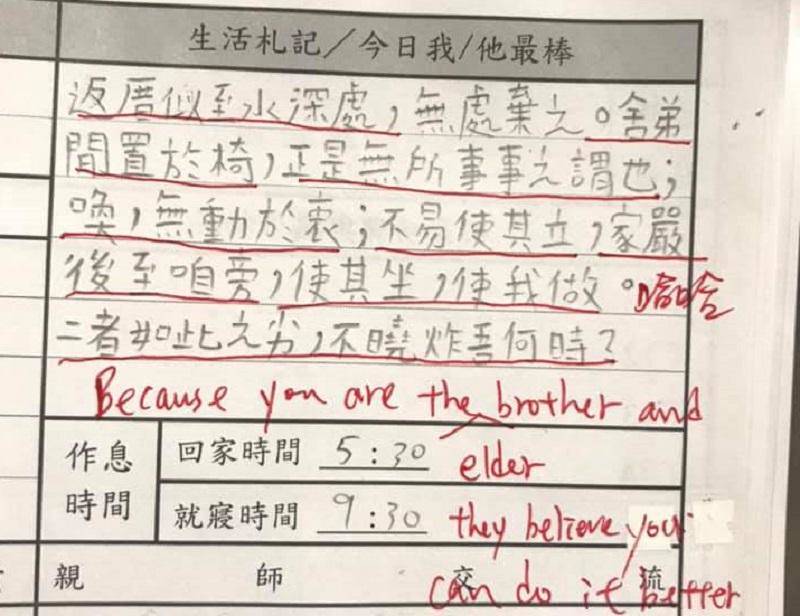 生活札記／今日我/他最棒
返厝似至水深處，無處棄之。舍弟
閒置於椅，正是無所事事之謂也；
喚，無動於衷；不易使其立，家嚴
後至咱旁，使其坐，使我做。哈哈
二者如此之劣，不曉炸吾何時？
Because you are the brother and
elder
作息時間
回家時間 5:30
就寢時間 9:30
they believe you
can do it better
親師交流